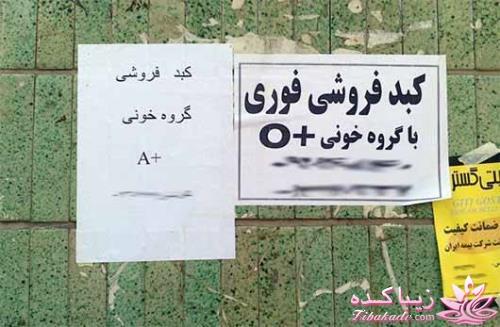 کبد فروشی
گروه خونی
A+
کبد فروشی فوری
با گروه خونی O+
GITI GOST
ضمانت کیفیت
شرکت بیمه ایران
زیباکده
Zibakade.com